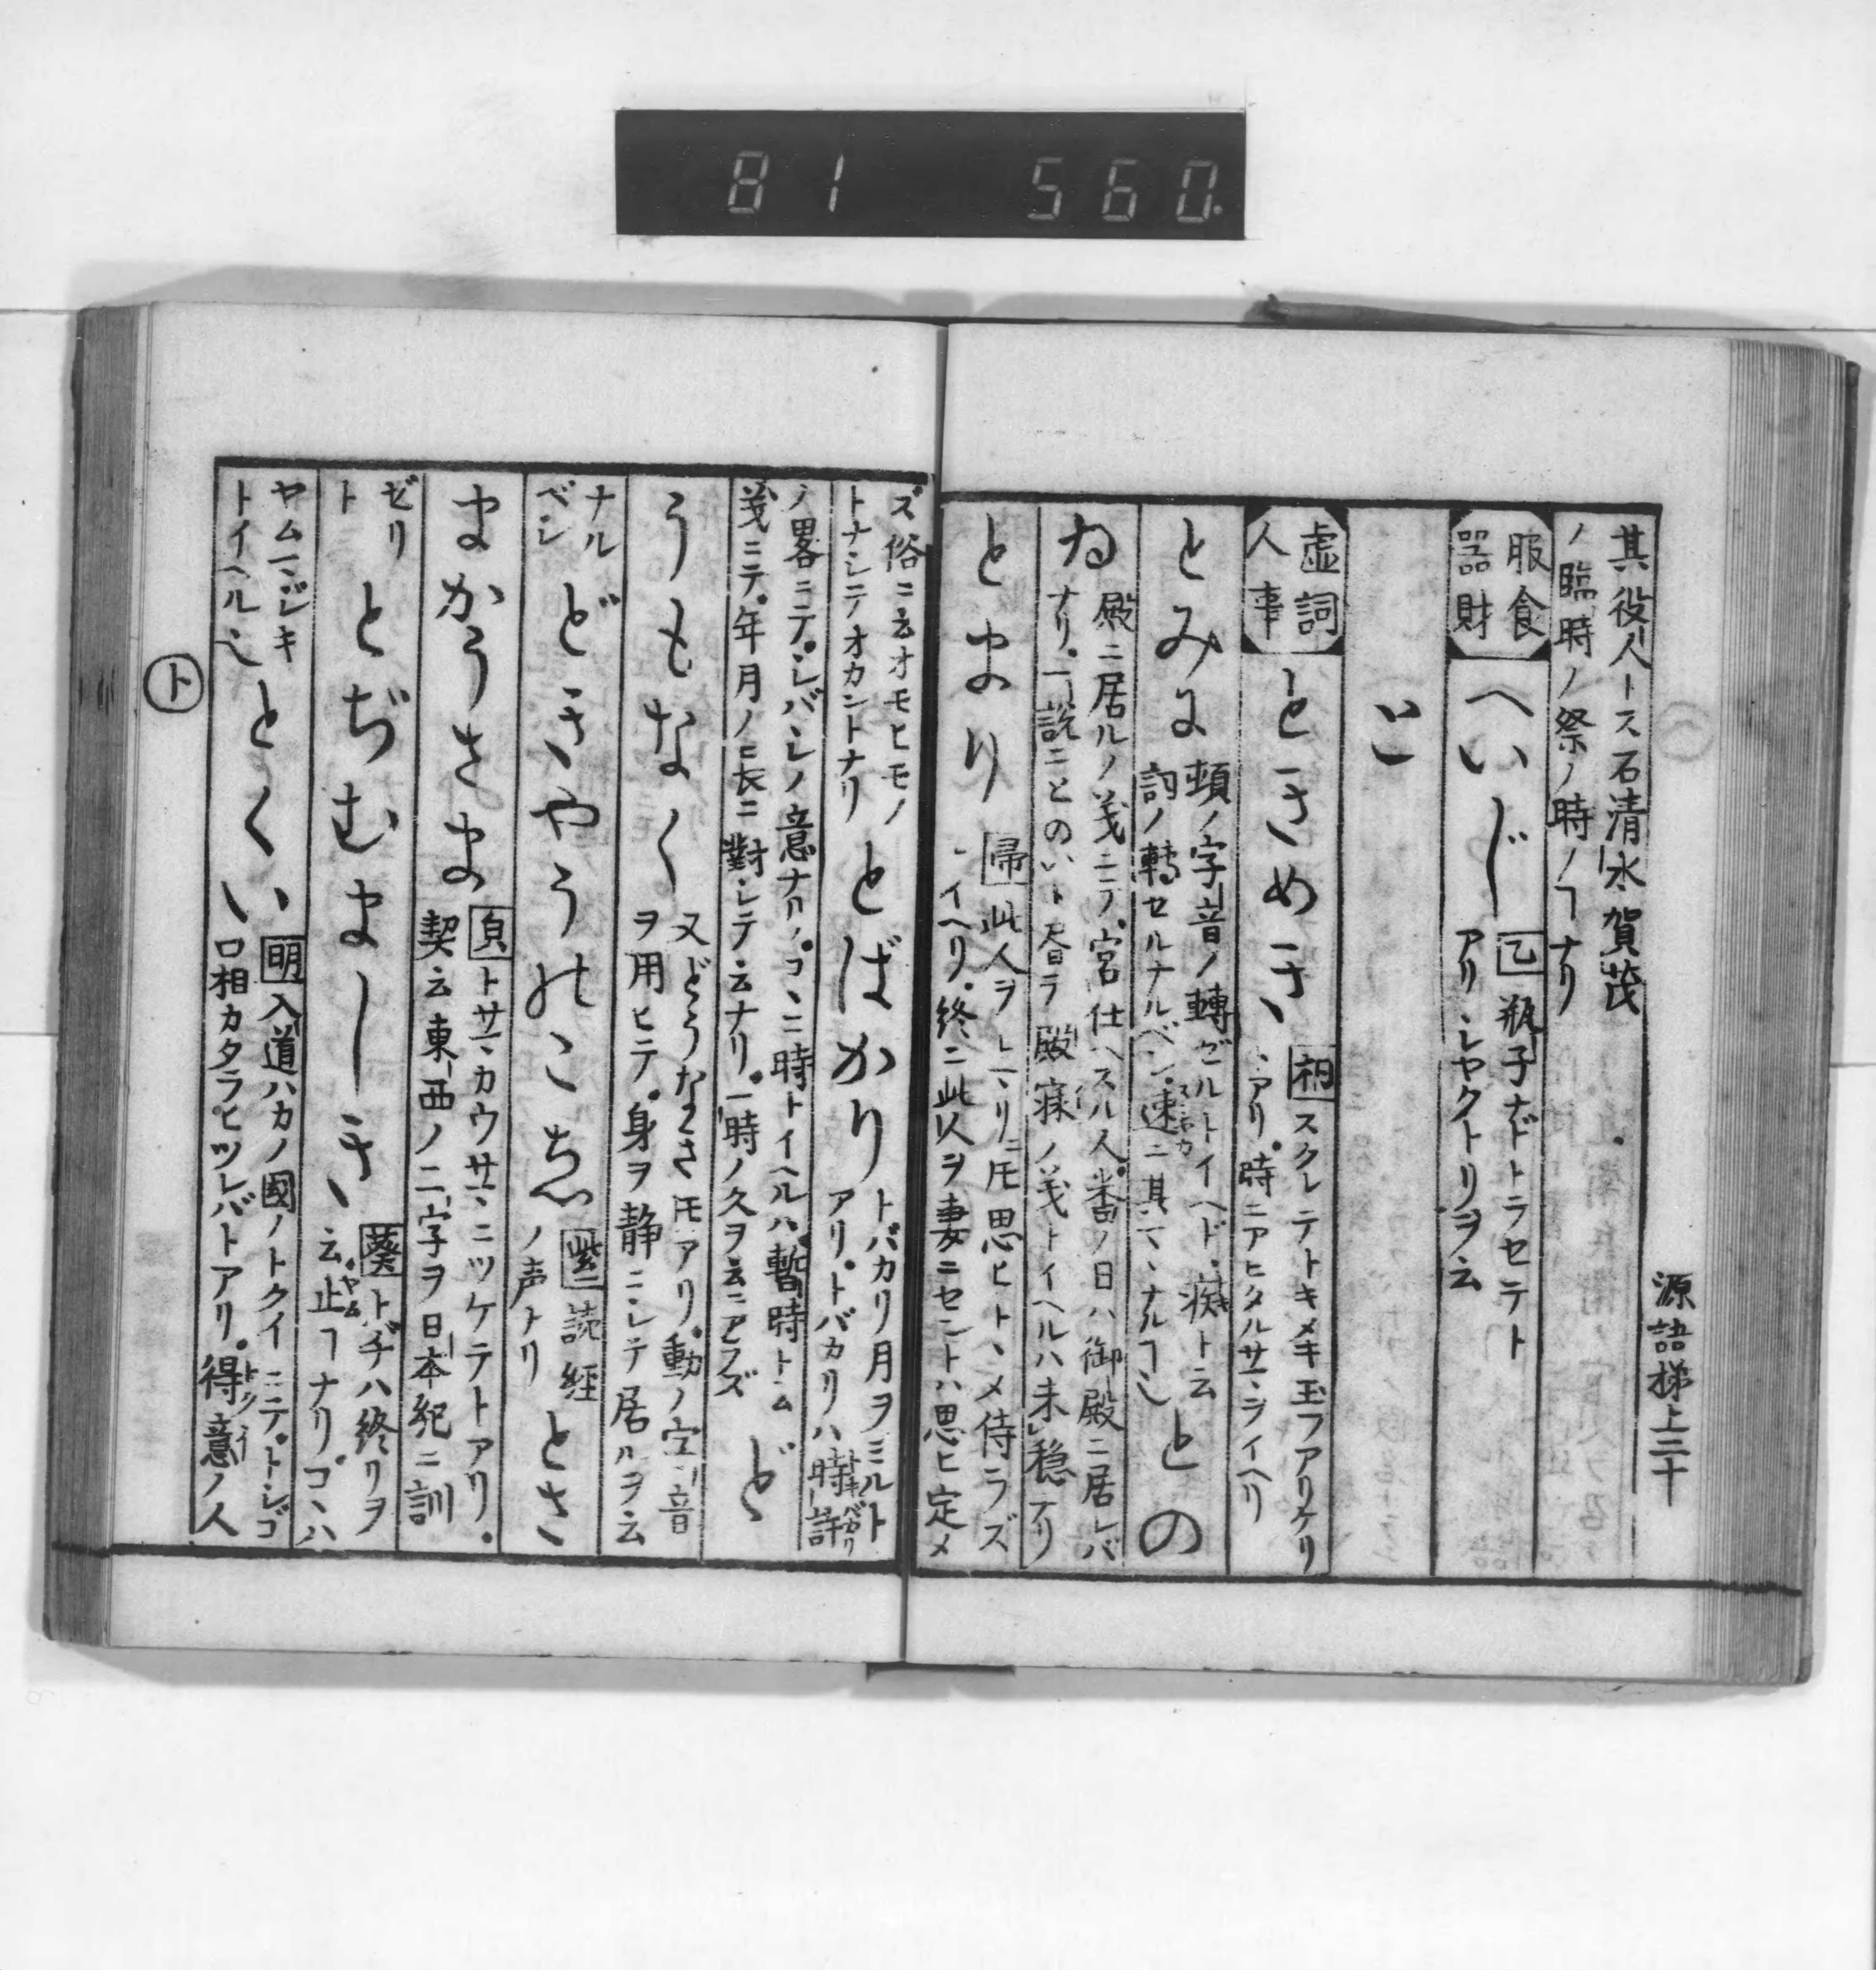 81 560.
其役人トス石清水賀茂
ノ臨時ノ祭ノ時ノヿナリ
服食
器財
へいじ
乙 瓶子ナドトラセテト
アリシヤクトリヲ云
と
虚詞
人事
ときめき
スクレテトキメキ玉フアリケリ
時ニアヒタルサマヲイヘリ
とみに
頓ノ字音ノ轉ゼルトイヘド痴ト云
詞ノ轉セルナルベシ速ニ其マヽナルヿ也
との
ゐ
殿ニ居ルノ義ニテ宮仕ヘスル人番ノ日ハ御殿ニ居レバ
ナリ一説ニとのいト書テ殿寐ノ義トイヘルハ未穏ナリ
とまり
帚 此人ヲトマリニ𪜈思ヒトヽメ侍ラズ
イヘリ終ニ此人ヲ妻ニセントハ思ヒ定メ
源語梯上三十
ズ俗ニ云オモヒモノ
トナシテオカントナリ
とばかり
トバカリ月ヲミルト
アリトバカリハ時許
ノ畧ニテシバシノ意ナリコヽニ時トイヘルハ暫時ト云
義ニテ年月ノ長ニ對シテ云ナリ一時ノ久ヲ云ニアラズ
ど
うもなく
又どうなき𪜈アリ動ノ字音
ヲ用ヒテ身ヲ静ニシテ居ルヲ云
ナル
ベシ
どきやうのこゑ
紫 読経
ノ声トリ
とさ
まかうさま
トサマカウサマニツケテトアリ
契云東西ノ二字ヲ日本紀ニ訓
ゼリ
ト
とぢむまじき
葵 トヂハ終リヲ
云止ヿナリコヽハ
ヤムマジキ
トイヘル也
とくい
明 入道ハカノ國ノトクイニテトシゴ
ロ相カタラヒツレバトアリ得意ノ人
ト